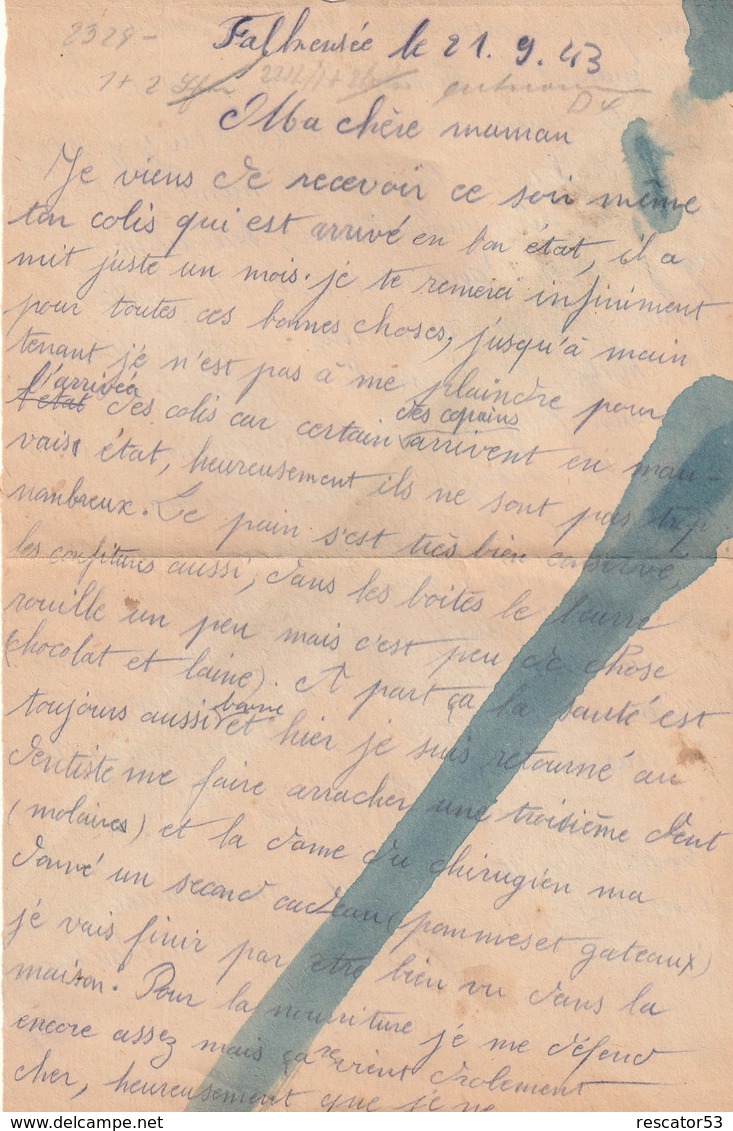 2329-
Falkensée le 21. 9. 43
1 + 2
Ma chère maman
Je viens de recevoir ce soir même
ton colis qui est arrivé en bon état, il a
mit juste un mois. je te remerci infiniment
pour toutes ces bonnes choses, jusqu'à main
tenant je n'est pas à me plaindre pour
l'arrivée
l'état des colis car certain des copains arrivent en mau-
vais état, heureusement ils ne sont pas trop
nombreux. Le pain s'est très bien conservé,
les confitures aussi, dans les boites le beurre
rouille un peu mais c'est peu de chose
(chocolat et laine). A part ça la santé est
toujours aussi bonne et hier je suis retourné au
dentiste me faire arracher une troisième dent
(molaires) et la dame du chirugien ma
donné un second cadeau (pommes et gateaux)
je vais finir par etre bien vu dans la
maison. Pour la nourriture je me défend
encore assez mais ça revient drolement
cher, heureusement que je ne
rescator53